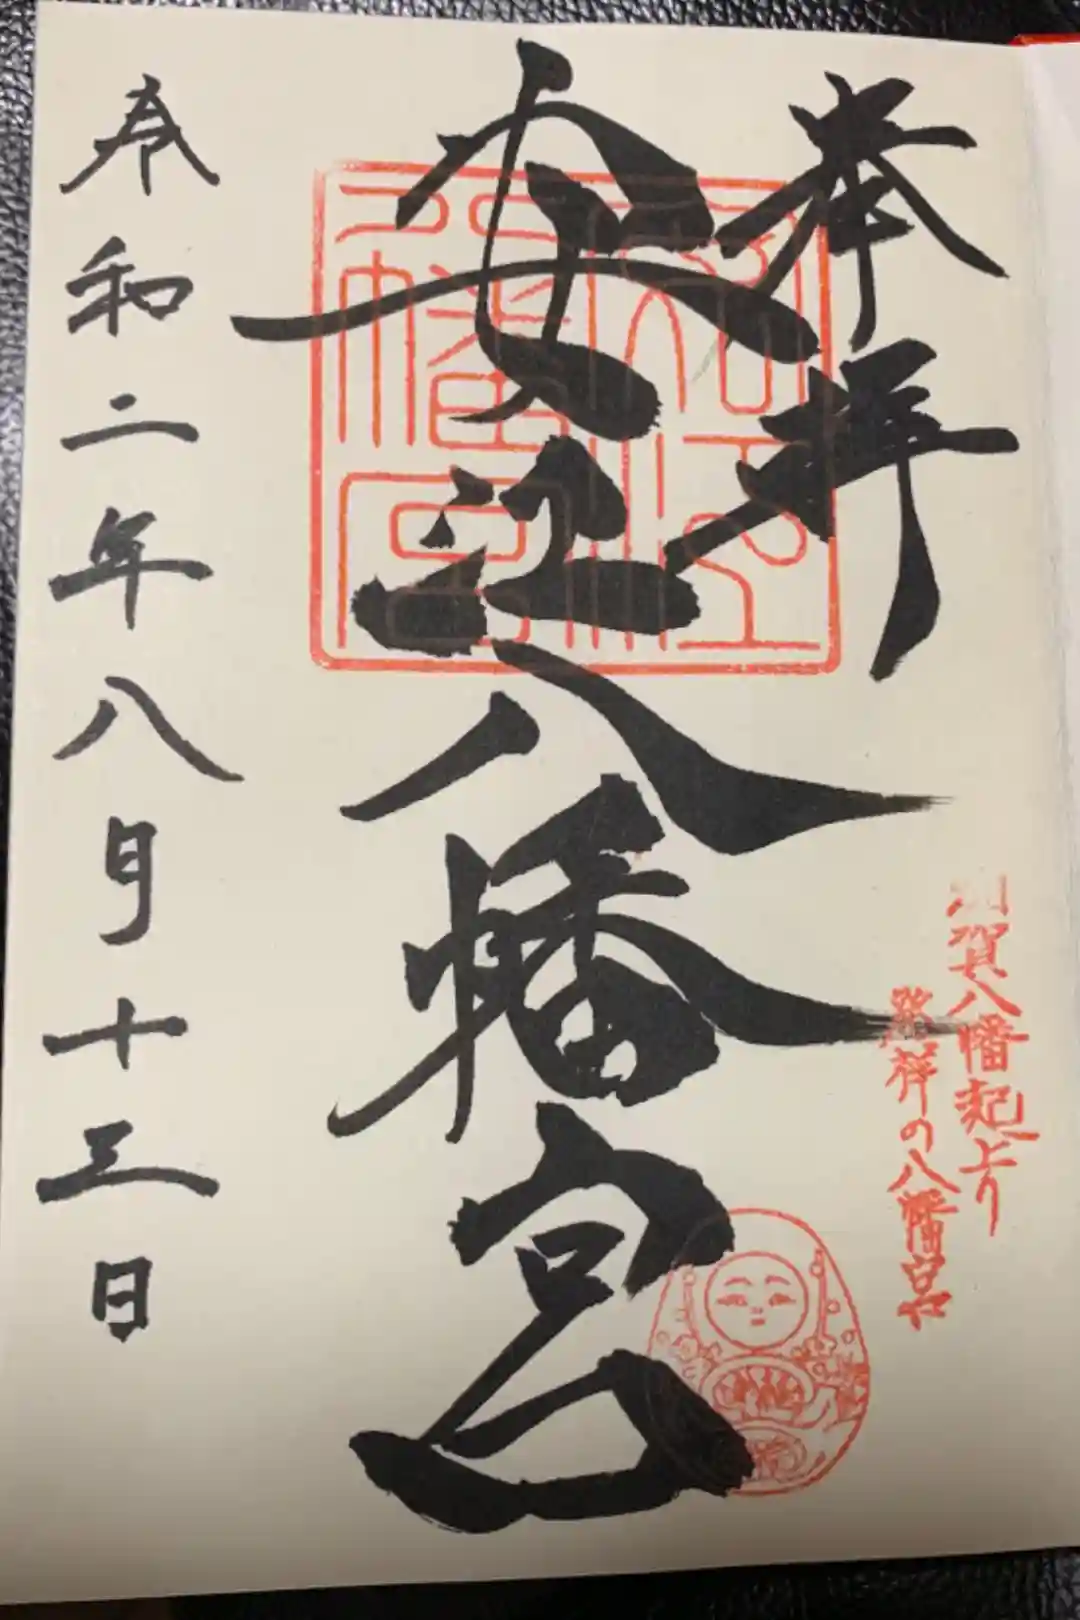 奉拝
加賀八幡起上り
発祥の八幡宮
安江八幡宮
令和二年八月十三日